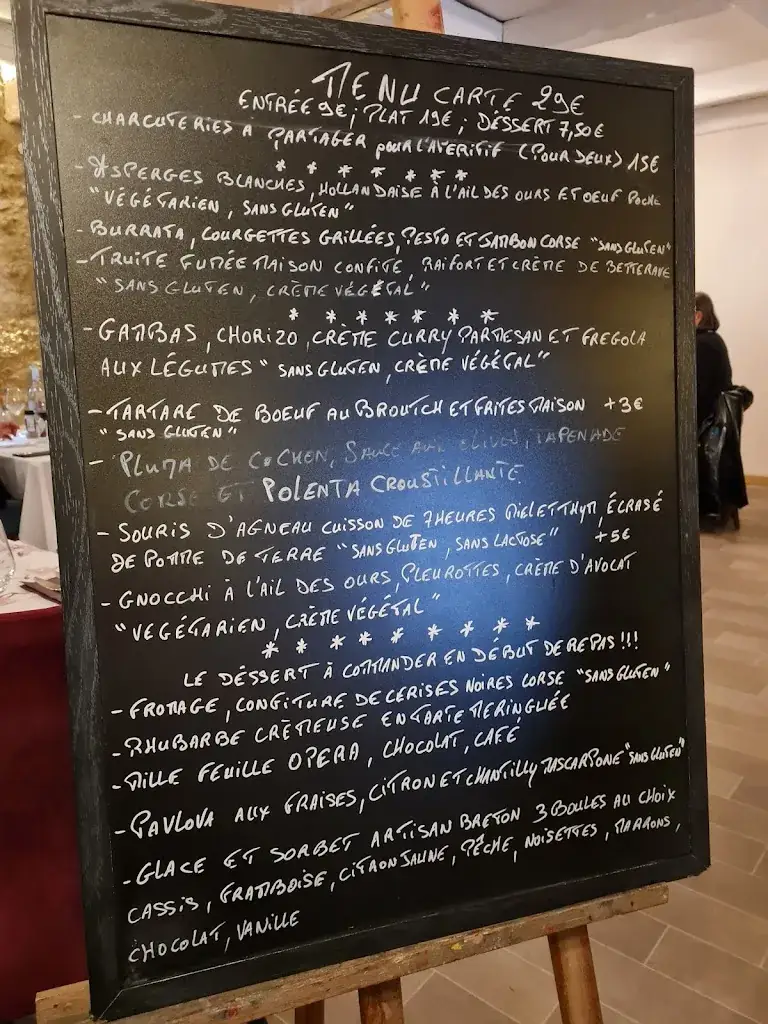 MENU CARTE 29€
ENTRÉE 9€ ; PLAT 19€ ; DÉSSERT 7,50€
- CHARCUTERIES À PARTAGER POUR L'APERITIF (POUR DEUX) 15€
* * * * * *
- ASPERGES BLANCHES, HOLLANDAISE À L'AIL DES OURS ET OEUF POCHE
"VÉGÉTARIEN, SANS GLUTEN"
- BURRATA, COURGETTES GRILLÉES, PESTO ET JAMBON CORSE "SANS GLUTEN"
- TRUITE FUMÉE MAISON CONFITE, RAIFORT ET CRÈME DE BETTERAVE
"SANS GLUTEN, CRÈME VÉGÉTAL"
* * * * * *
- GAMBAS, CHORIZO, CRÈME CURRY PARMESAN ET FREGOLA
AUX LÉGUMES "SANS GLUTEN, CRÈME VÉGÉTAL"
- TARTARE DE BOEUF AU BROUTCH ET FRITES MAISON +3€
"SANS GLUTEN"
- PLUMA DE COCHEN, SAUCE AUX OLIVES, TAPENADE
CORSE ET POLENTA CROUSTILLANTE
- SOURIS D'AGNEAU CUISSON DE 7HEURES MIEL ET THYM, ÉCRASÉ
DE POMME DE TERRE "SANS GLUTEN, SANS LACTOSE" +5€
- GNOCCHI À L'AIL DES OURS, PLEUROTTES, CRÈME D'AVOCAT
"VEGÉTARIEN, CRÈME VÉGÉTAL"
* * * * * * * *
LE DÉSSERT À COMMANDER EN DÉBUT DE REPAS !!!
- FROMAGE, CONFITURE DE CERISES NOIRES CORSE "SANS GLUTEN"
- RHUBARBE CRÈMEUSE EN TARTE MERINGUÉE
- MILLE FEUILLE OPERA, CHOCOLAT, CAFÉ
- PAVLOVA AUX FRAISES, CITRON ET CHANTILLY MASCARPONE "SANS GLUTEN"
- GLACE ET SORBET ARTISAN BRETON 3 BOULES AU CHOIX
CASSIS, FRAMBOISE, CITRON JAUNE, PÊCHE, NOISETTES, MARRONS,
CHOCOLAT, VANILLE